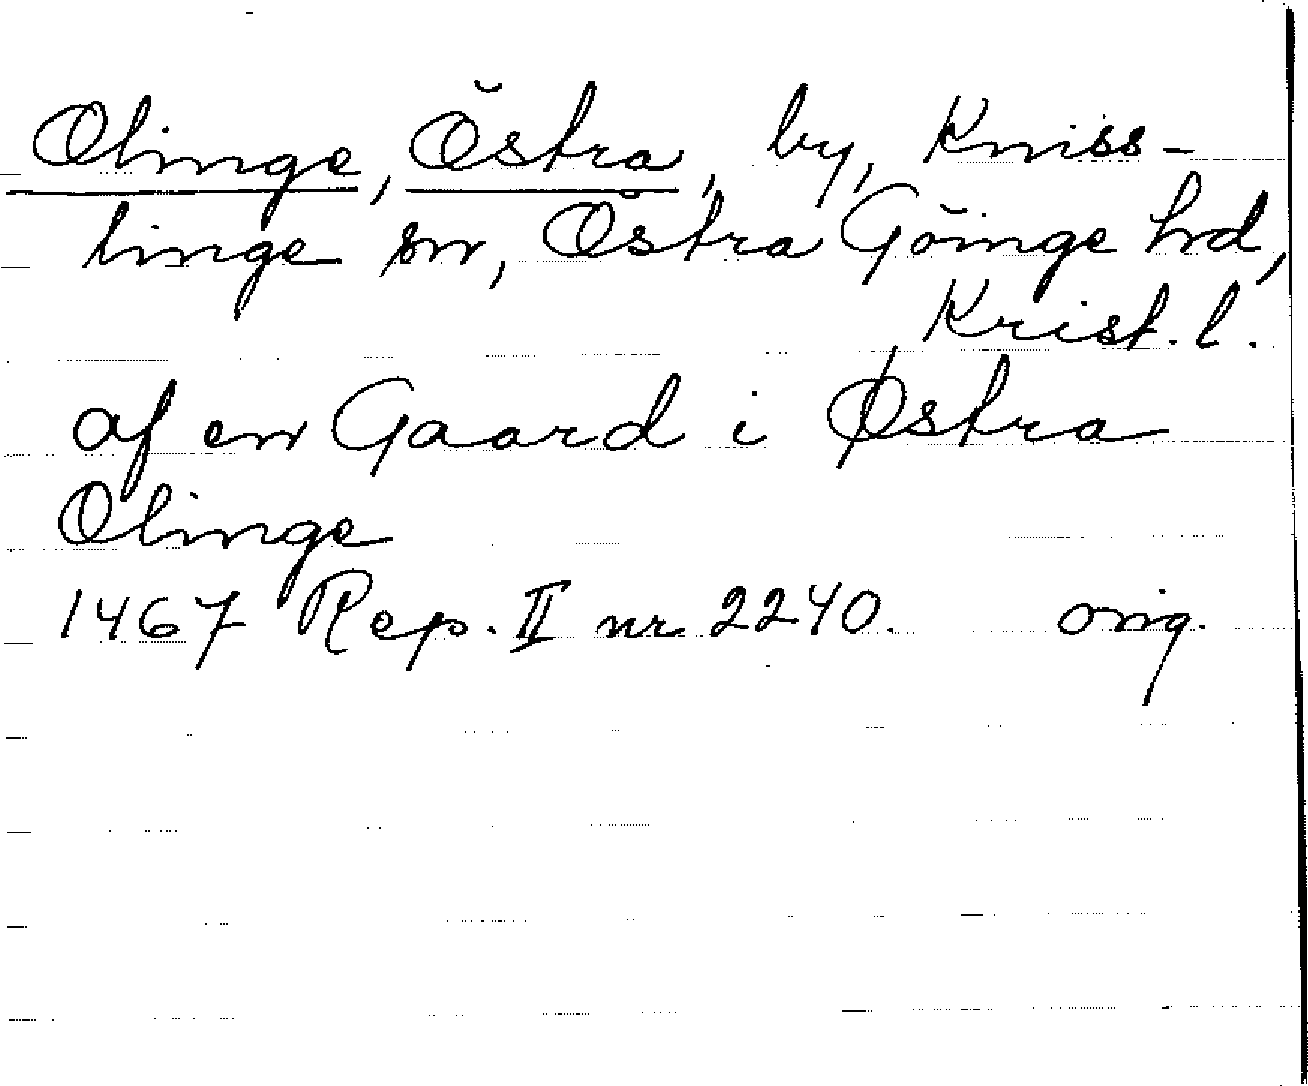 Olinge, Östra, by, Kniss-
linge sn, Östra Göinge hd,
Krist. l.
af en Gaard i Østra
Olinge
1467 Rep. II nr 2240. orig.